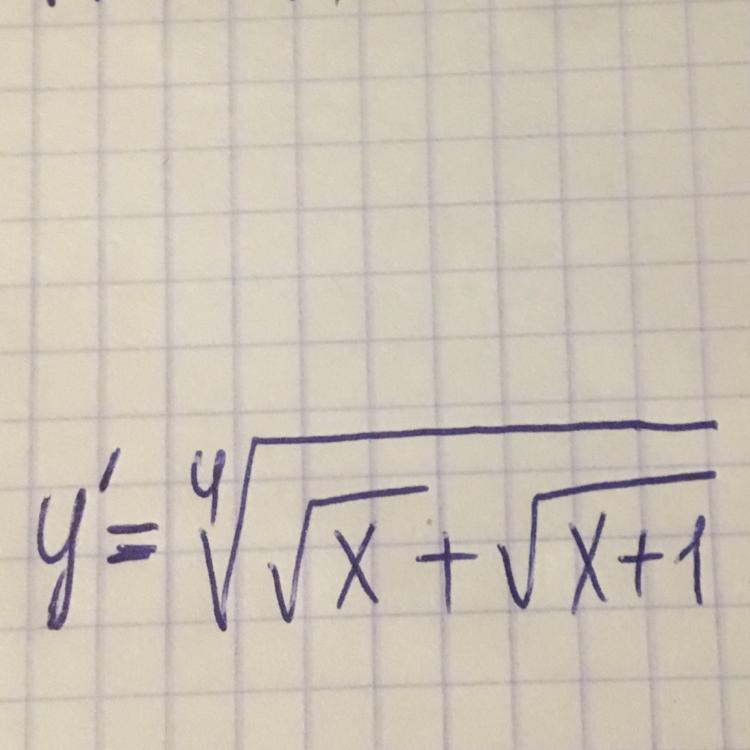 y' = ∜(√x + √(x+1))